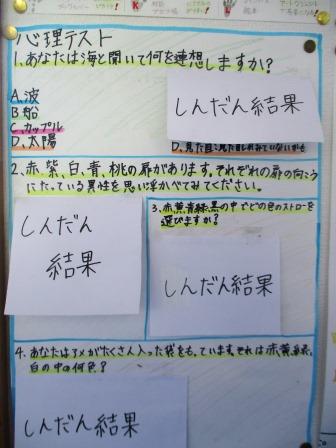 心理テスト
1、あなたは海と聞いて何を連想しますか?
A、波
B、船
C、カップル
D、太陽
しんだん結果
2、赤、紫、白、青、桃の扉があります。それぞれの扉の向こう
にたっている異性を思い浮かべてみてください。
しんだん
結果
3、赤、黄、青、緑、黒の中でどの色のストローを
選びますか?
しんだん結果
4、あなたはアメがたくさん入った袋をもっています。それは赤、黄、緑、
白の中の何色?
しんだん結果